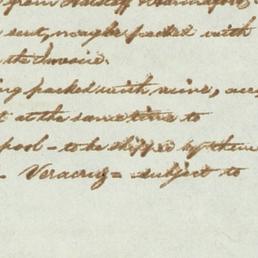 from
sent, may be packed with
the Invoice.
packed with mine, 
at the same time to
pool - to be shipped by them
- Veracruz - subject to